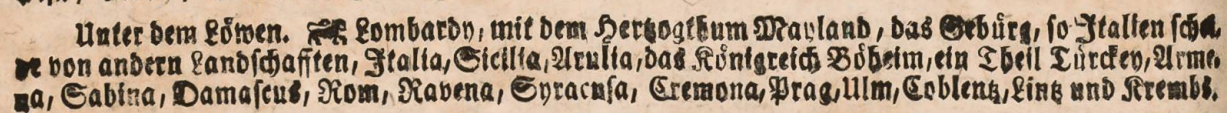 Unter dem Löwen. Lombardy, mit dem Hertzogthum Mayland, das Gebürg, so Italien sche-
de von andern Landschafften, Italia, Sicilia, Arulia, das Königreich Böheim, ein Theil Türckey, Arme-
na, Sabina, Damascus, Rom, Ravena, Syracusa, Cremona, Prag, Ulm, Coblentz, Lintz und Krembs.